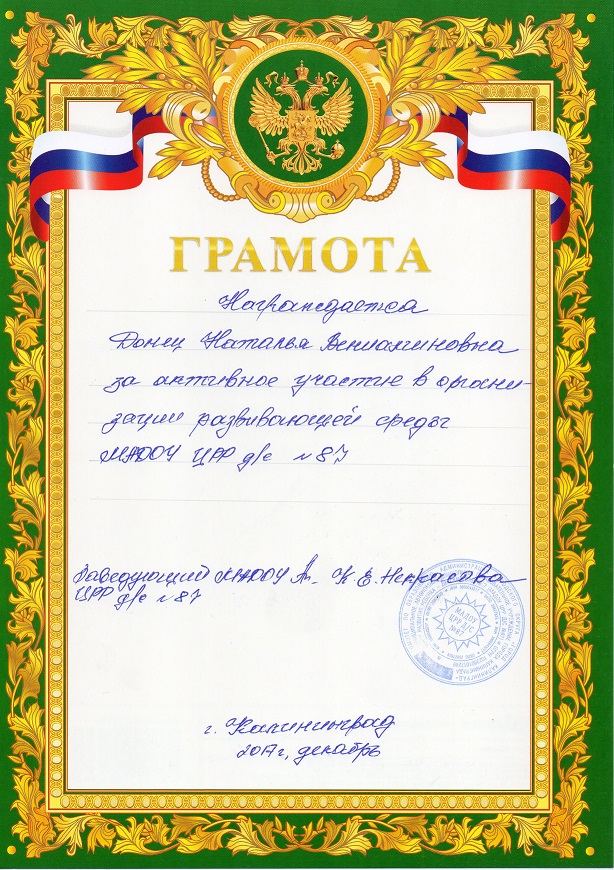 ГРАМОТА
Награждается
Донец Наталья Вениаминовна
за активное участие в органи-
зации развивающей среды
МАДОУ ЦРР д/с №87
Заведующий МАДОУ К.Е.Некрасова
ЦРР д/с №87
МАДОУ
ЦРР Д/С
№87
г. Калининград
2017г, декабрь